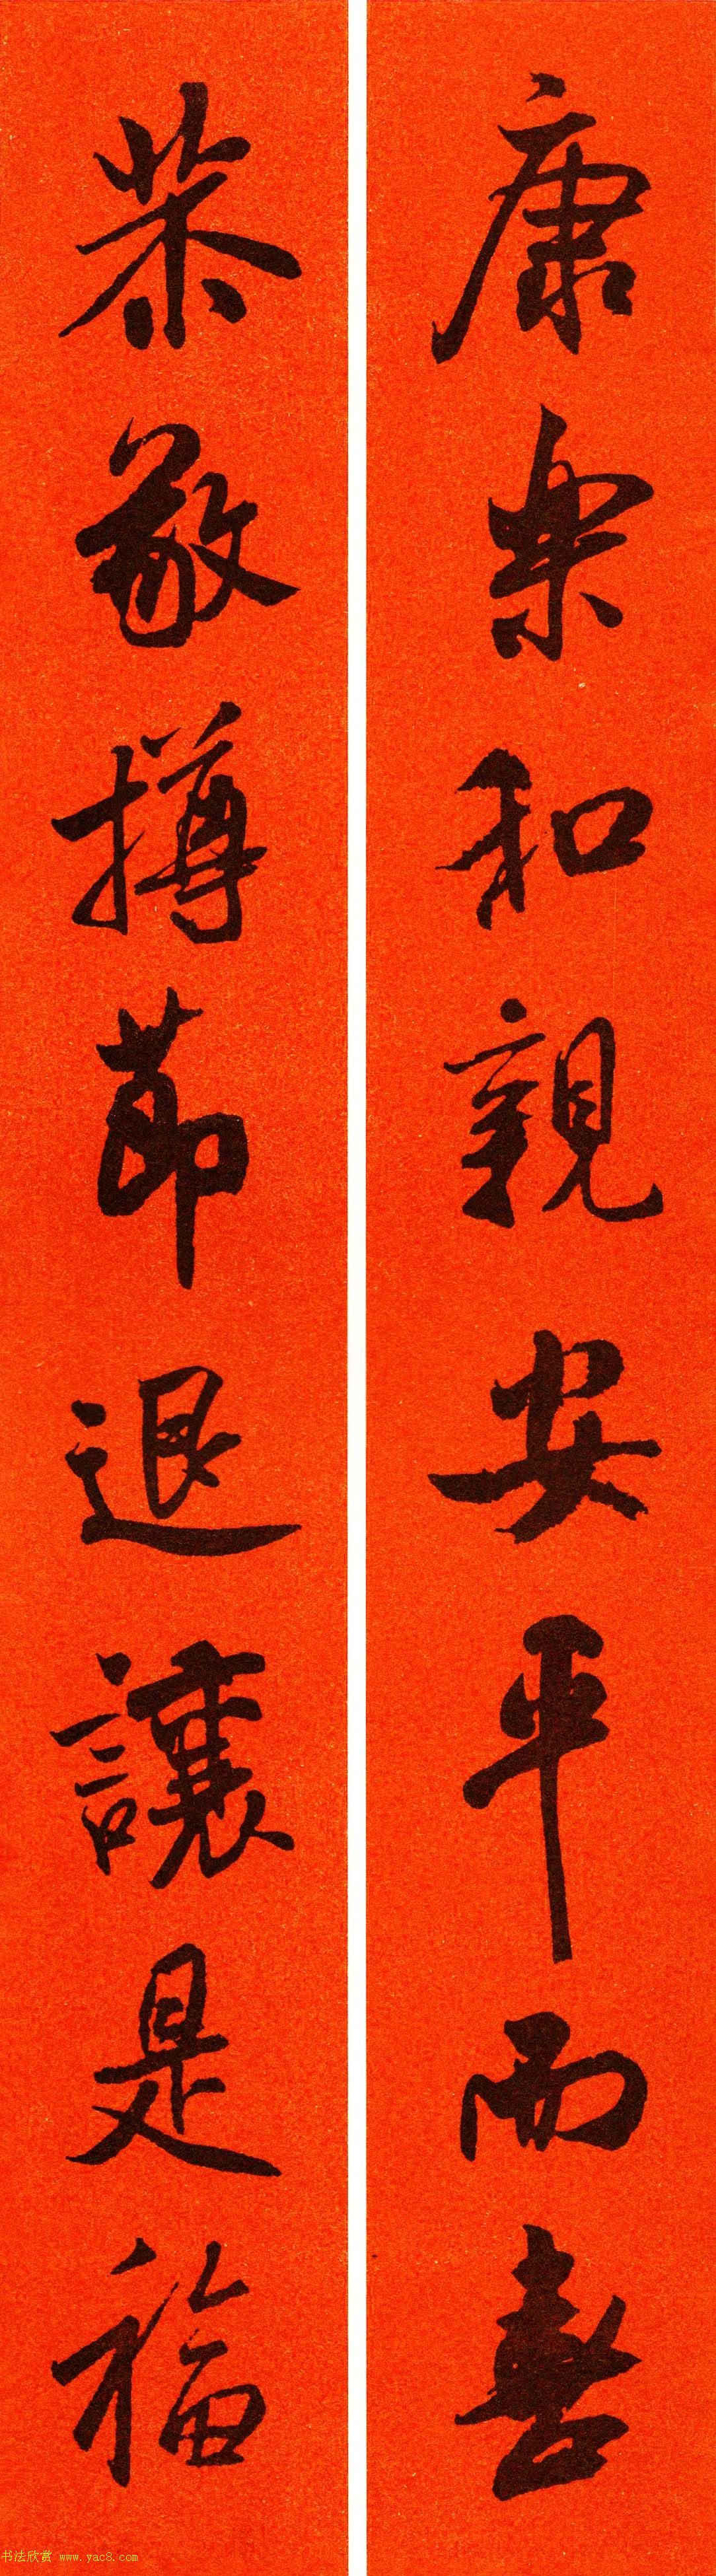 康樂和親安平而喜
恭敬撙節退讓是福
书法欣赏 www.yac8.com